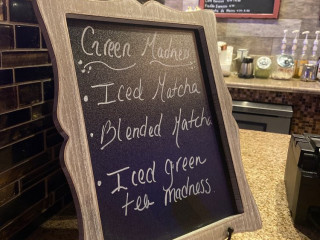 Green Madness
• Iced Matcha
• Blended Matcha
• Iced green
tea madness